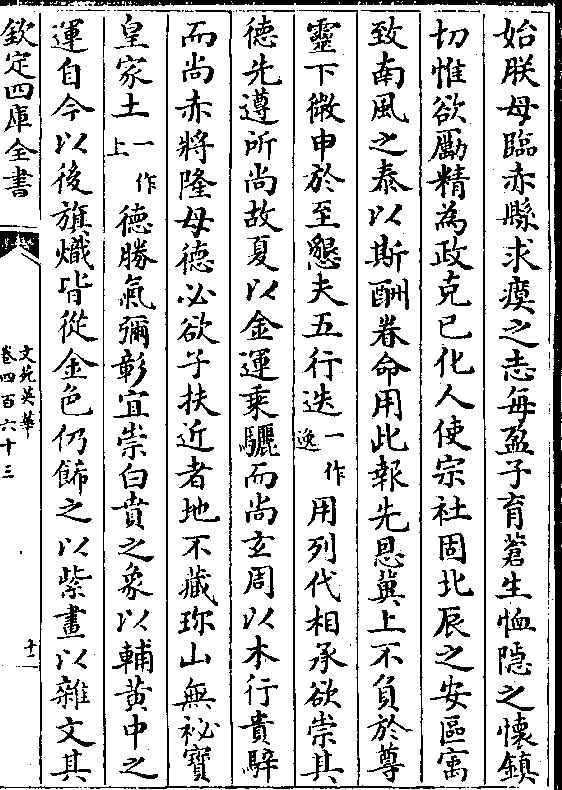 始朕母臨赤縣求瘼之志每盈子育蒼生恤隱之懷鎮
切惟欲勵精為政克已化人使宗社固北辰之安區寓
致南風之泰以斯酬眷命用此報先恩冀上不負於尊
靈下微申於至懇夫五行迭一作逸用列代相承欲崇其
德先遵所尚故夏以金運乗驪而尚玄周以木行貴騂
而尚赤將隆母德必欲子扶近者地不藏珎山無祕寶
皇家土一作上德勝氣彌彰宜崇白賁之象以輔黃中之
運自今以後旗熾皆從金色仍飾之以紫畫以雜文其
欽定四庫全書
文苑英華
卷四百六十三
十一